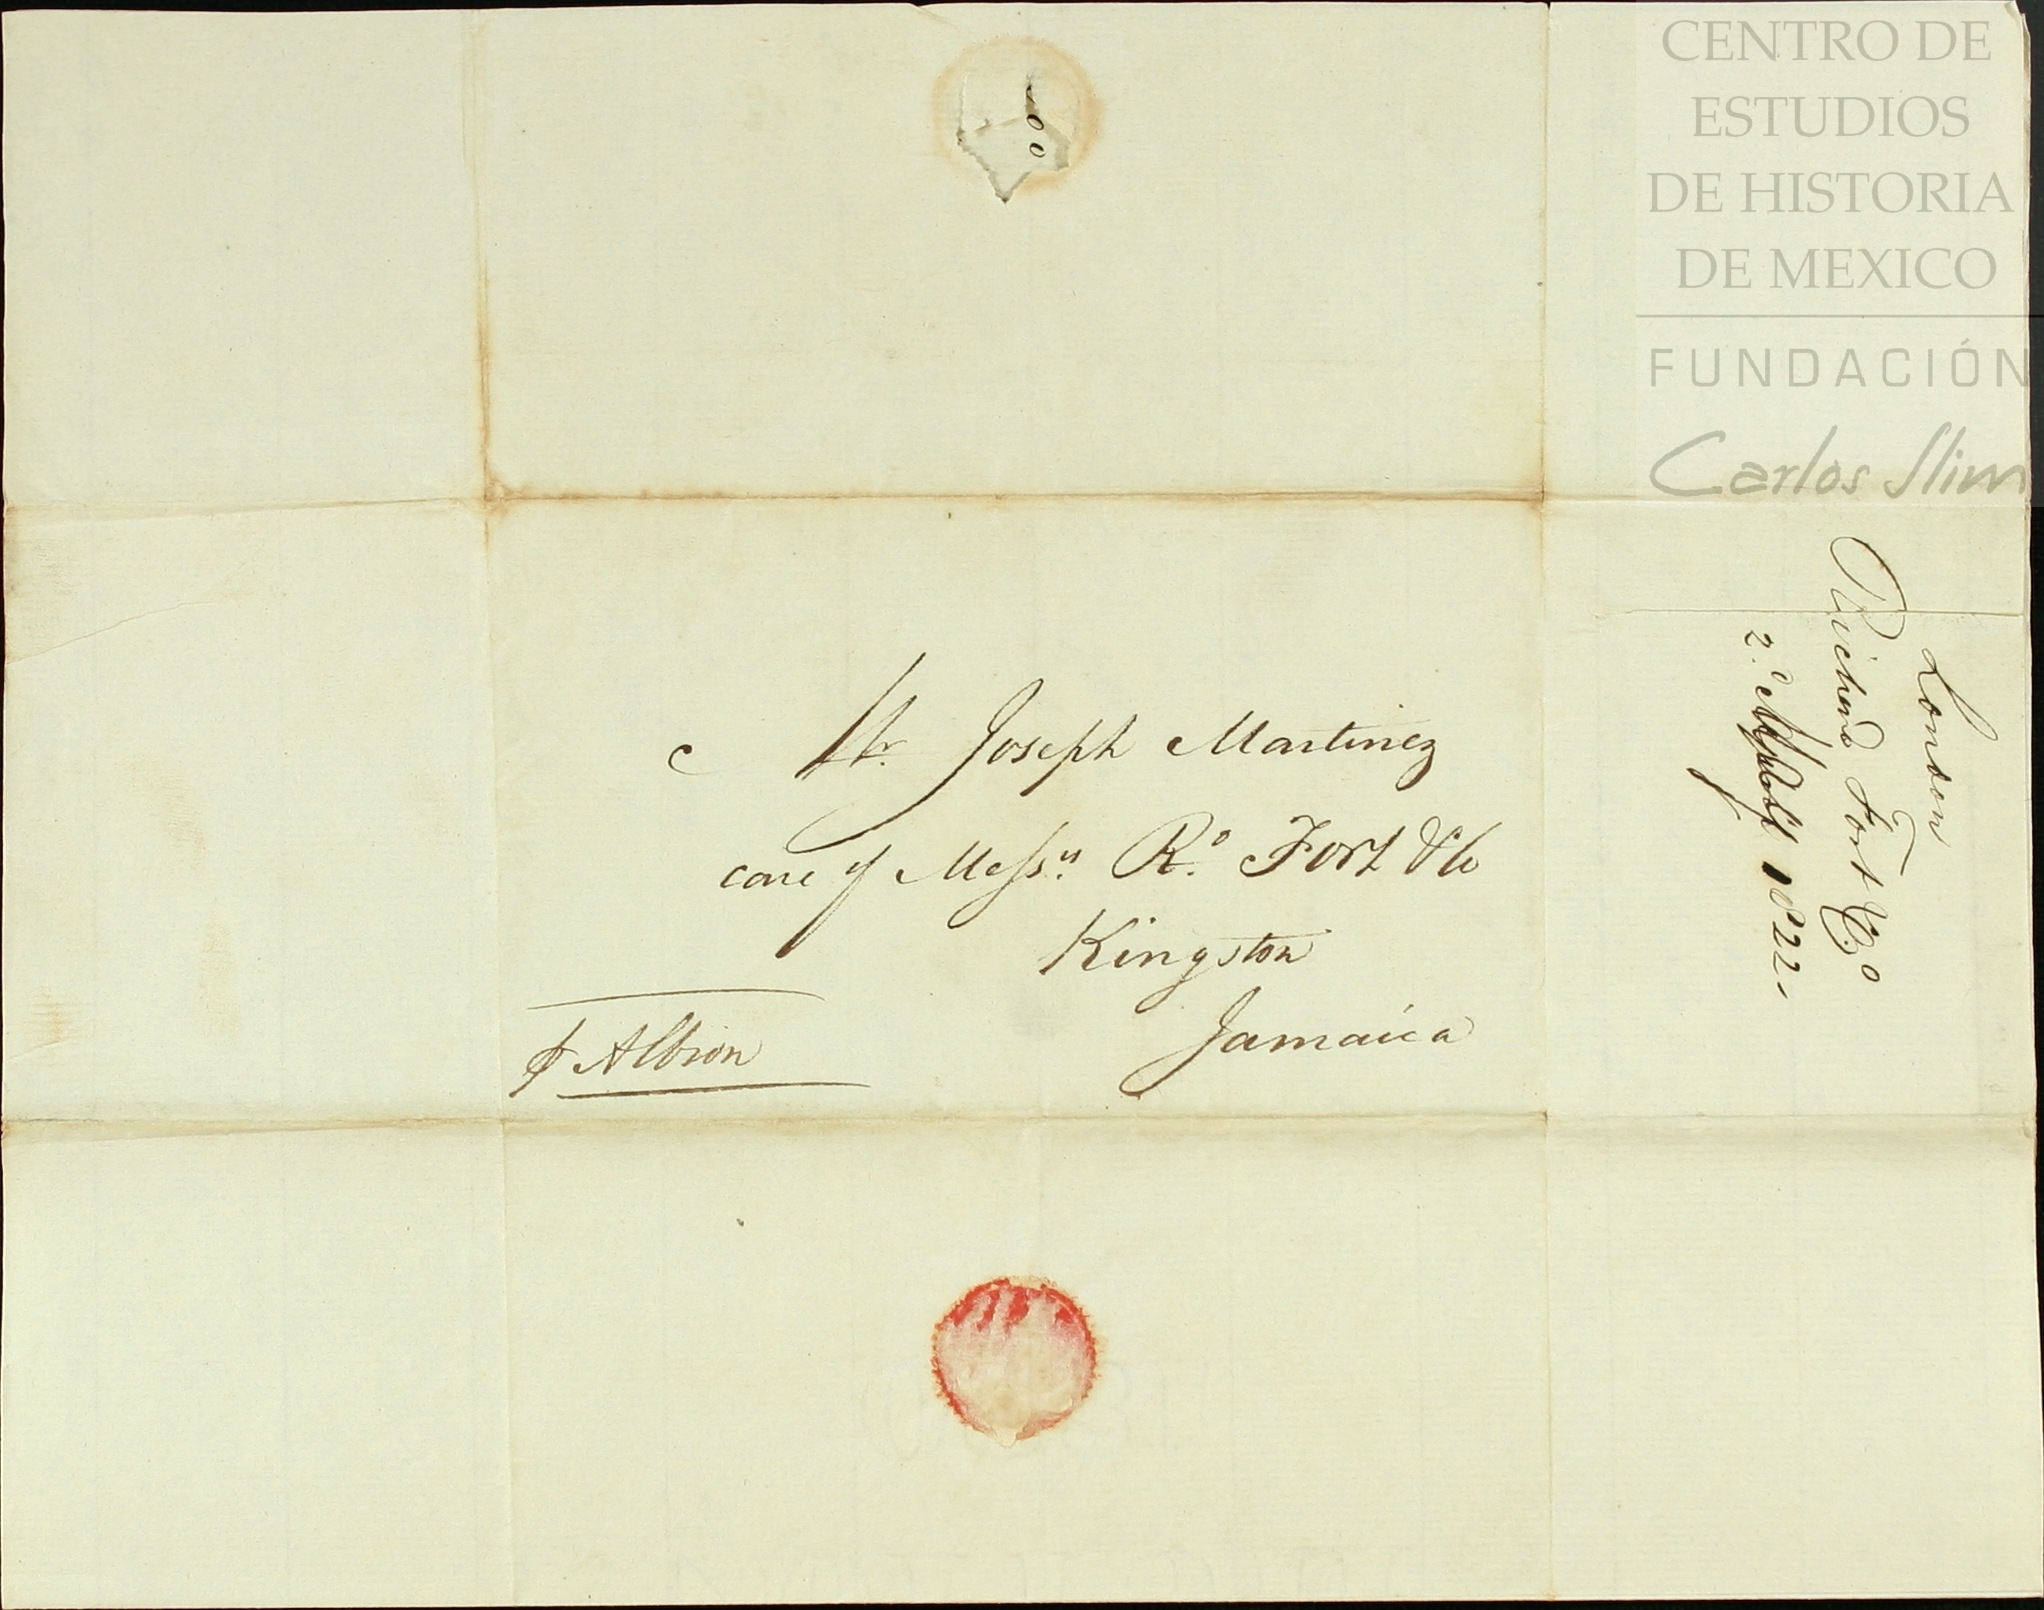 Mr. Joseph Martinez
care of Messrs. Rd. Fort & Co
Kingston
Jamaica
p Albion
London
Richard Fort & Co
2. 1822
CENTRO DE
ESTUDIOS
DE HISTORIA
DE MEXICO
FUNDACIÓN
Carlos Slim